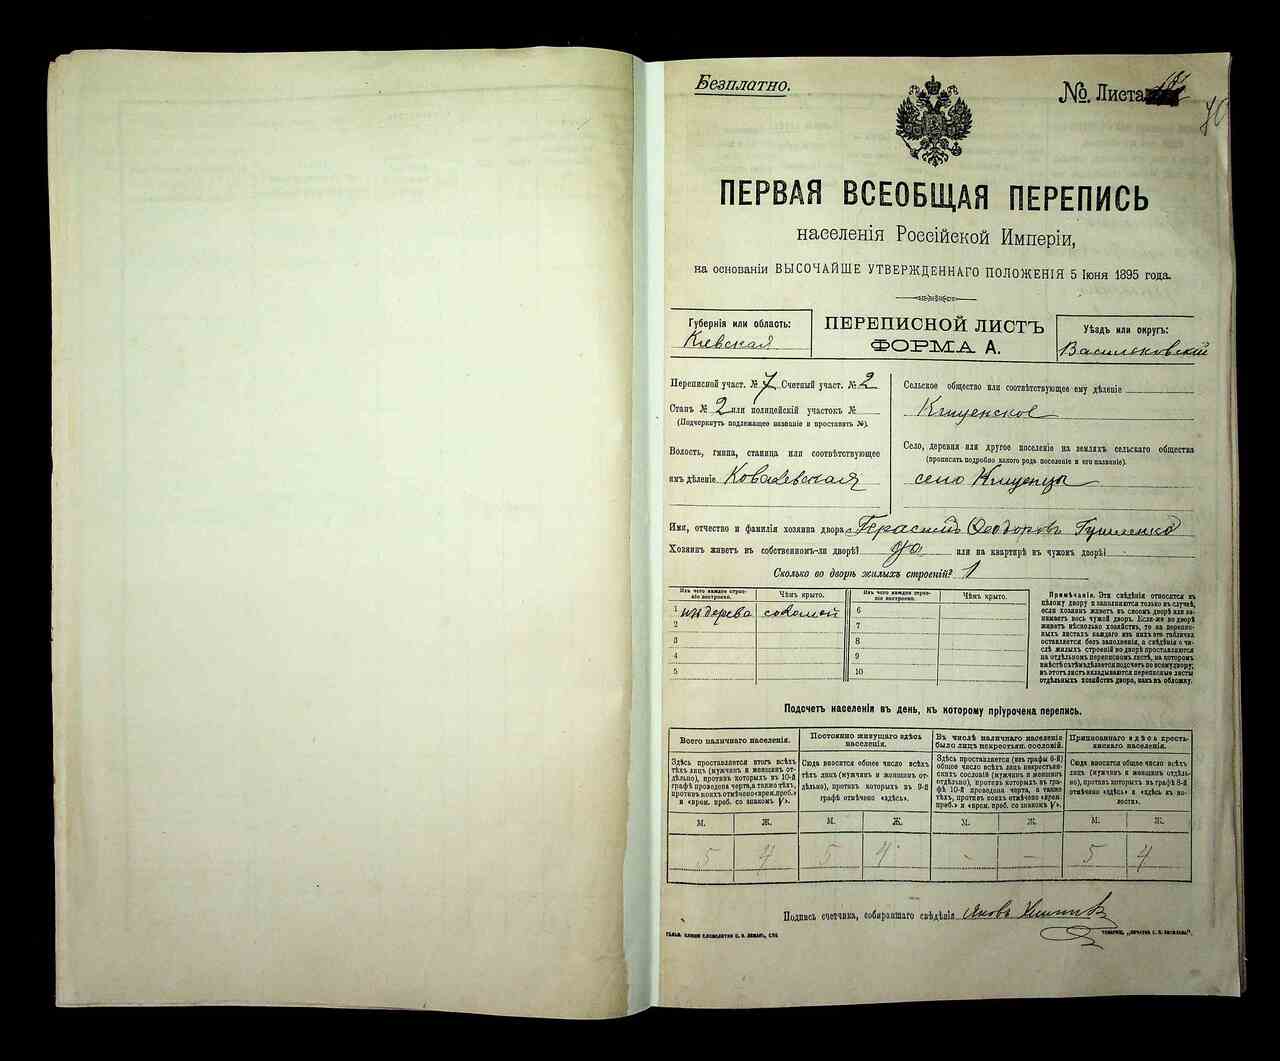 Безплатно.
№. Листа
ПЕРВАЯ ВСЕОБЩАЯ ПЕРЕПИСЬ
населенія Россійской Имперіи,
на основаніи ВЫСОЧАЙШЕ УТВЕРЖДЕННАГО ПОЛОЖЕНІЯ 5 Іюня 1895 года.
Губернія или область:
Кіевская
ПЕРЕПИСНОЙ ЛИСТЪ
ФОРМА А.
Уѣздъ или округъ:
Васильковскій
Переписной участ. № 7 Счетный участ. № 2
Станъ № 2 или полицейскій участокъ №
(Подчеркнуть подлежащее названіе и проставить №).
Волость, гмина, станица или соотвѣтствующее
имъ дѣленіе Ковалевская
Сельское общество или соотвѣтствующее ему дѣленіе
Село, деревня или другое поселеніе на земляхъ сельскаго общества
(прописать подробно какого рода поселеніе и его названіе).
село
Имя, отчество и фамилія хозяина двора Герасимъ Ѳеодоровъ
Хозяинъ живетъ въ собственномъ-ли дворѣ? да или на квартирѣ въ чужомъ дворѣ?
Сколько во дворѣ жилыхъ строеній? 1
Изъ чего каждое строеніе построено.
Чѣмъ крыто.
Изъ чего каждое строеніе построено.
Чѣмъ крыто.
1 изъ дерева соломой 6
2 7
3 8
4 9
5 10
Примѣчаніе. Эти свѣдѣнія относятся къ
цѣлому двору и заполняются только въ случаѣ,
если хозяинъ живетъ въ своемъ дворѣ или за-
нимаетъ весь чужой дворъ. Если-же во дворѣ
живетъ нѣсколько хозяйствъ, то на перепис-
ныхъ листахъ каждаго изъ нихъ эта табличка
оставляется безъ заполненія, а свѣдѣнія о чи-
слѣ жилыхъ строеній во дворѣ проставляются
на отдѣльномъ переписномъ листѣ, на которомъ
вмѣстѣ съ тѣмъ дѣлается подсчетъ по всему двору;
въ этотъ листъ вкладываются переписные листы
отдѣльныхъ хозяйствъ двора, какъ въ обложку.
Подсчетъ населенія въ день, къ которому пріурочена перепись.
Всего наличнаго населенія.
Здѣсь проставляется итогъ всѣхъ
тѣхъ лицъ (мужчинъ и женщинъ от-
дѣльно), противъ которыхъ въ 10-й
графѣ проведена черта, а также тѣхъ,
противъ коихъ отмѣчено «врем. преб.»
и «врем. преб. со знакомъ V».
Постоянно живущаго здѣсь
населенія.
Сюда вносится общее число всѣхъ
тѣхъ лицъ (мужчинъ и женщинъ от-
дѣльно), противъ которыхъ въ 9-й
графѣ отмѣчено «здѣсь».
Въ числѣ наличнаго населенія
было лицъ некрестьян. сословій.
Здѣсь проставляется (изъ графы 6-й)
общее число всѣхъ лицъ некрестьян-
скихъ сословій (мужчинъ и женщинъ
отдѣльно), противъ которыхъ въ гра-
фѣ 10-й проведена черта, а также
тѣхъ, противъ коихъ отмѣчено «врем.
преб.» и «врем. преб. со знакомъ V».
Приписаннаго здѣсь кресть-
янскаго населенія.
Сюда вносится общее число всѣхъ
лицъ (мужчинъ и женщинъ отдѣль-
но), противъ которыхъ въ графѣ 8-й
отмѣчено «здѣсь» и «здѣсь къ во-
лости».
М. Ж. М. Ж. М. Ж. М. Ж.
5 4 5 4 - - 5 4
Подпись счетчика, собиравшаго свѣдѣнія Яковъ